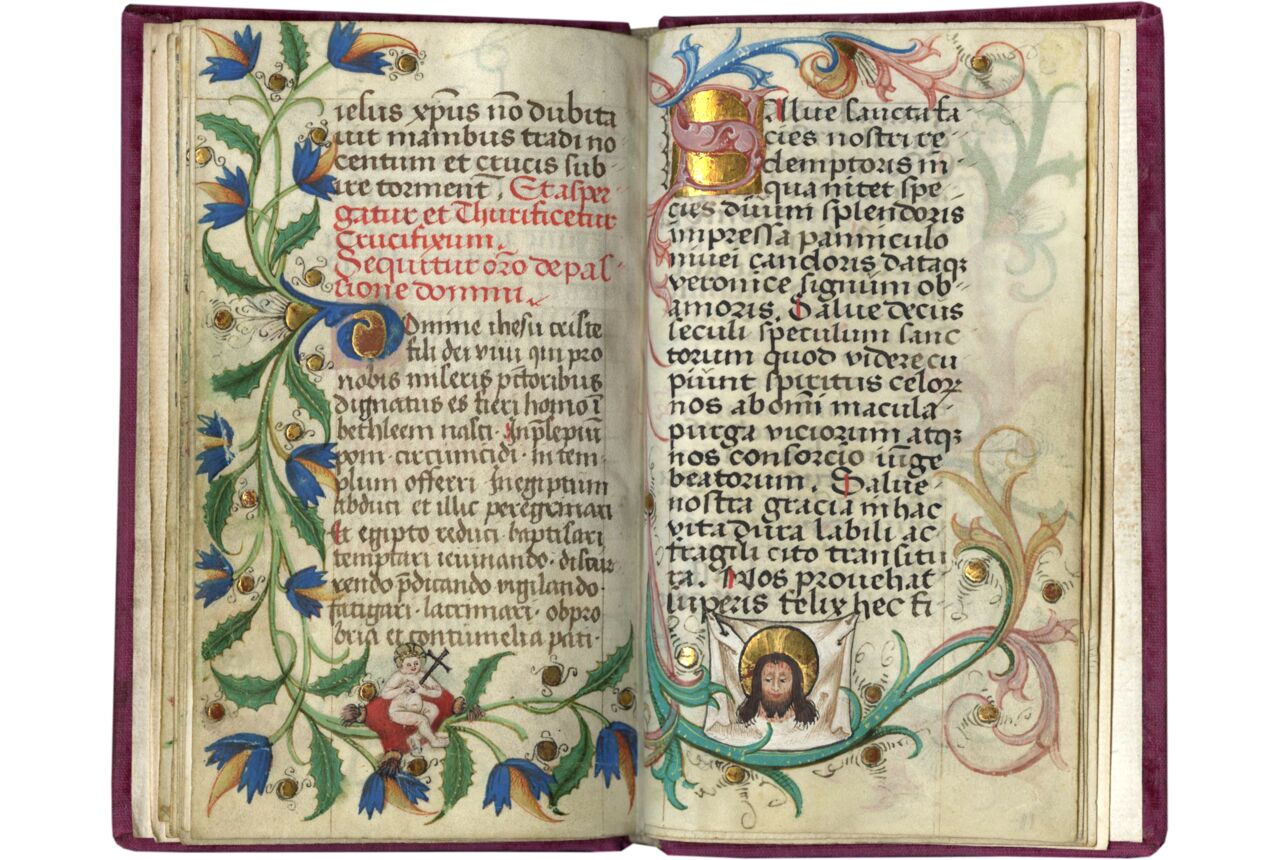 iesus xp̄us nō dubita
uit manibus tradi no
centum et crucis sub
ire torment̄. Et asper
gatur et Thurificetur
Crucifixum.
Sequitur or̄o de pas
sione domini.
Domine ihesu criste
fili dei viui qui pro
nobis miseris pc̄toribus
dignatus es fieri homo ī
bethleem nasci. In p̄sepiū
poni. circumcidi. In tem
plum offerri. In egiptum
abduci et illic peregrinari
Et egipto reduci. baptisari
temptari ieiunando. discur
rendo p̄dicando vigilando.
fatigari. lacrimari. obpro
bria et contumelia pati.
Salue sancta fa
cies nostri re
demptoris in
qua nitet spe
cies diuini splendoris
impressa panniculo
niuei candoris dataqꝫ
veronice signum ob
amoris. Salue decus
seculi speculum sanc
torum quod videre cu
piunt spiritus celoꝝ
nos ab om̄i macula
purga viciorum atqꝫ
nos consorcio iūge
beatorum. Salue
nostra gracia in hac
vita dura labili ac
fragili cito transitu
ra. Nos prouehat
superis felix hec fi